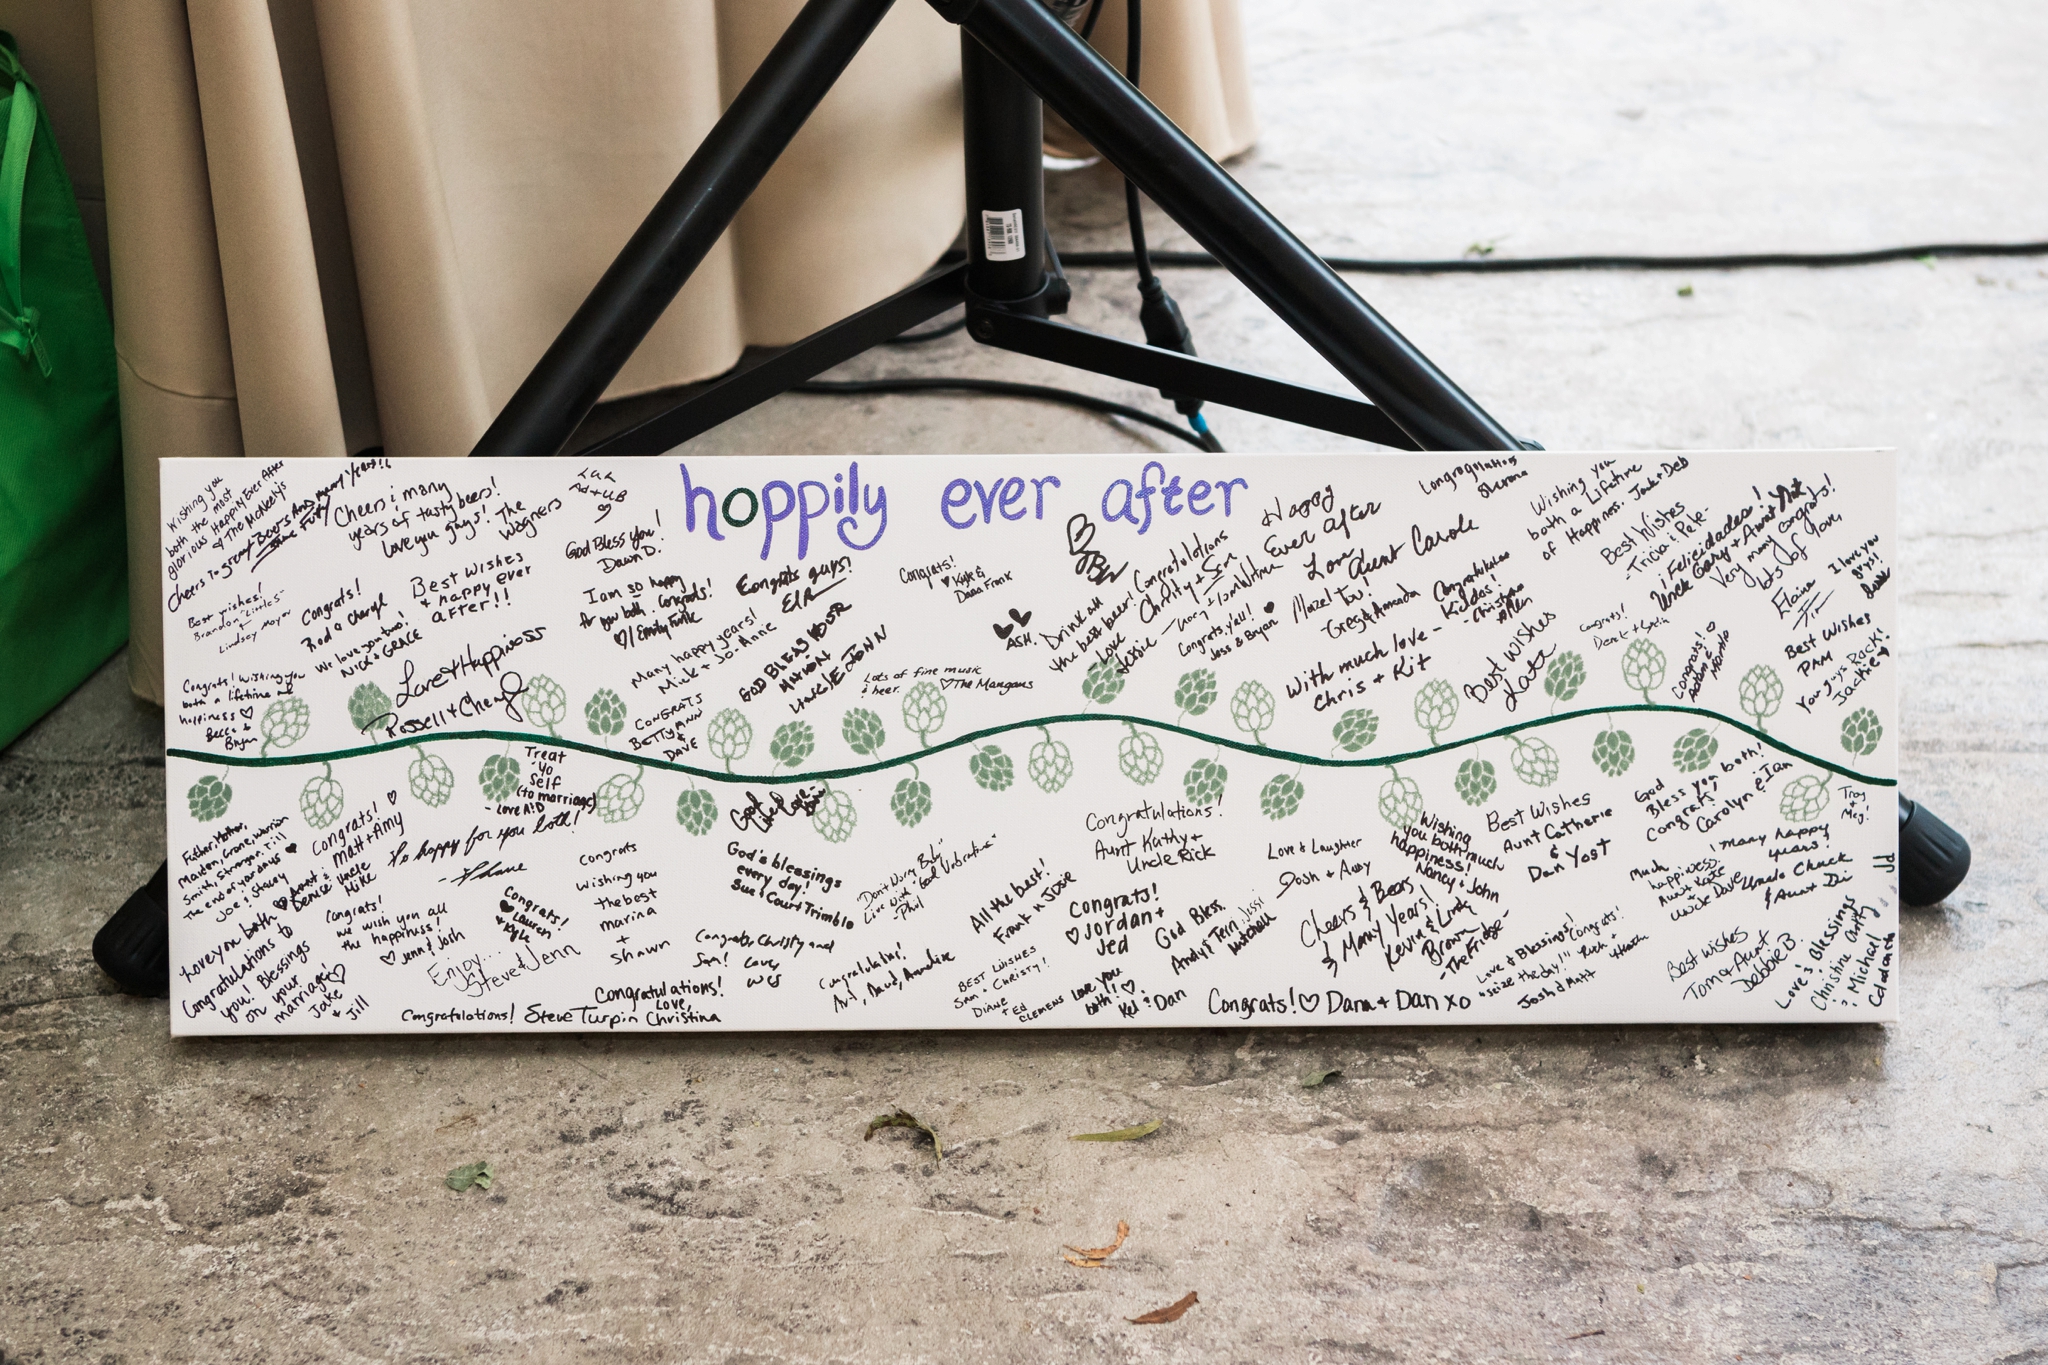 hoppily ever after
Wishing you
both the most
glorious Happily Ever After
The McNeelys
Cheers To great Beers And many Years!
Cheers & many
years of tasty beers!
love you guys! The
Wagners
God Bless you!
Dawn D.
Best wishes!
Brandon "Little S"
+
Lindsey Mayer
Congrats!
Rod & Cheryl
We love you two!
Nick + Grace
Best Wishes
+ happy ever
after!!
I am so happy
for you both. Congrats!
♡/ Emily Funk
Congrats guys!
Many happy years!
Mick + Jo-Anne
Love + Happiness
Russell + Cheryl
Congrats! Wishing you
both a lifetime of
happiness ♡
Becca +
Bryan
CONGRATS
BETTY ANN
& DAVE
Lots of fine music
& beer. ♡ The Mangans
Congrats!
♥ Kyle &
Dana Frank
ASH.
Drink all
the best beer!
Love
Jessie
Congratulations
Christy + Sam
Congrats, y'all! ♥
Jess & Bryan
Happy
Ever after
Love
Aunt Carole
Mazel
Tov!
-Greg & Amanda
Congratulations
With much love -
Chris + Kit
Best Wishes
Wishing you
both a Lifetime
of Happiness. Jack + Deb
Best Wishes
-Tricia & Pete-
¡ Felicidades!
Uncle Gary + Aunt
Very many congrats!
lots of love,
Elaina
I love you
guys!
Congrats!
Best Wishes
PAM
You guys Rock!
Jackie ♥
Congrats! ♡
Treat
Yo
Self
(to marriage)
- Love A&D
Father, Mother,
Maiden, Crone, Warrior
Smith, Stranger. Till
the end of your days ♥
Joe & Stacey
Congrats! ♡
Matt + Amy
♥ Aunt &
Denise Uncle
Mike
So happy for you both!
- Shane
Love you both
Congratulations to
you! Blessings
on your
marriage! ♡
Jake
+ Jill
Congrats!
we wish you all
the happiness!
♡ Jenn & Josh
Congrats!
♥ Lauren
+ Kyle
Enjoy...
Steve + Jenn
Congrats
wishing you
the best
marina
+
Shawn
Congratulations! Steve Turpin
Congratulations!
Love,
Christina
God's blessings
every day!
Sue & Court Trimble
Congrats, Christy and
Sam! Love,
Wes
"Don't Worry Baby"
Live with "Good Vibrations"
-Phil
Congratulations!
All the best!
Frank & Josie
BEST WISHES
SAM & CHRISTY!
DIANE
+ ED
CLEMENS
Congratulations!
Aunt Kathy +
Uncle Rick
Congrats!
♡ Jordan +
Jed
God Bless.
Love you
both! ♡
Kel & Dan
Congrats! ♡ Dana + Dan xo
Love & Laughter
Josh + Amy
Wishing
you both much
happiness!
Nancy + John
Cheers & Beers
& Many Years!
Kevin & Lindy
Brown
-The Fridge-
Best Wishes
Aunt Catherine
&
Dan Yost
Love & Blessings!
"seize the day!!"
Josh & Matt
Congrats!
God
Bless you both!
Congrats,
Carolyn & Ian
Troy
+
Meg!
Much
happiness.
Aunt Kate
Uncle Dave
many happy
years!
Uncle Chuck
& Aunt Di
Best wishes
Tom & Aunt
Debbie B.
Love & Blessings
Christine Andy
& Michael